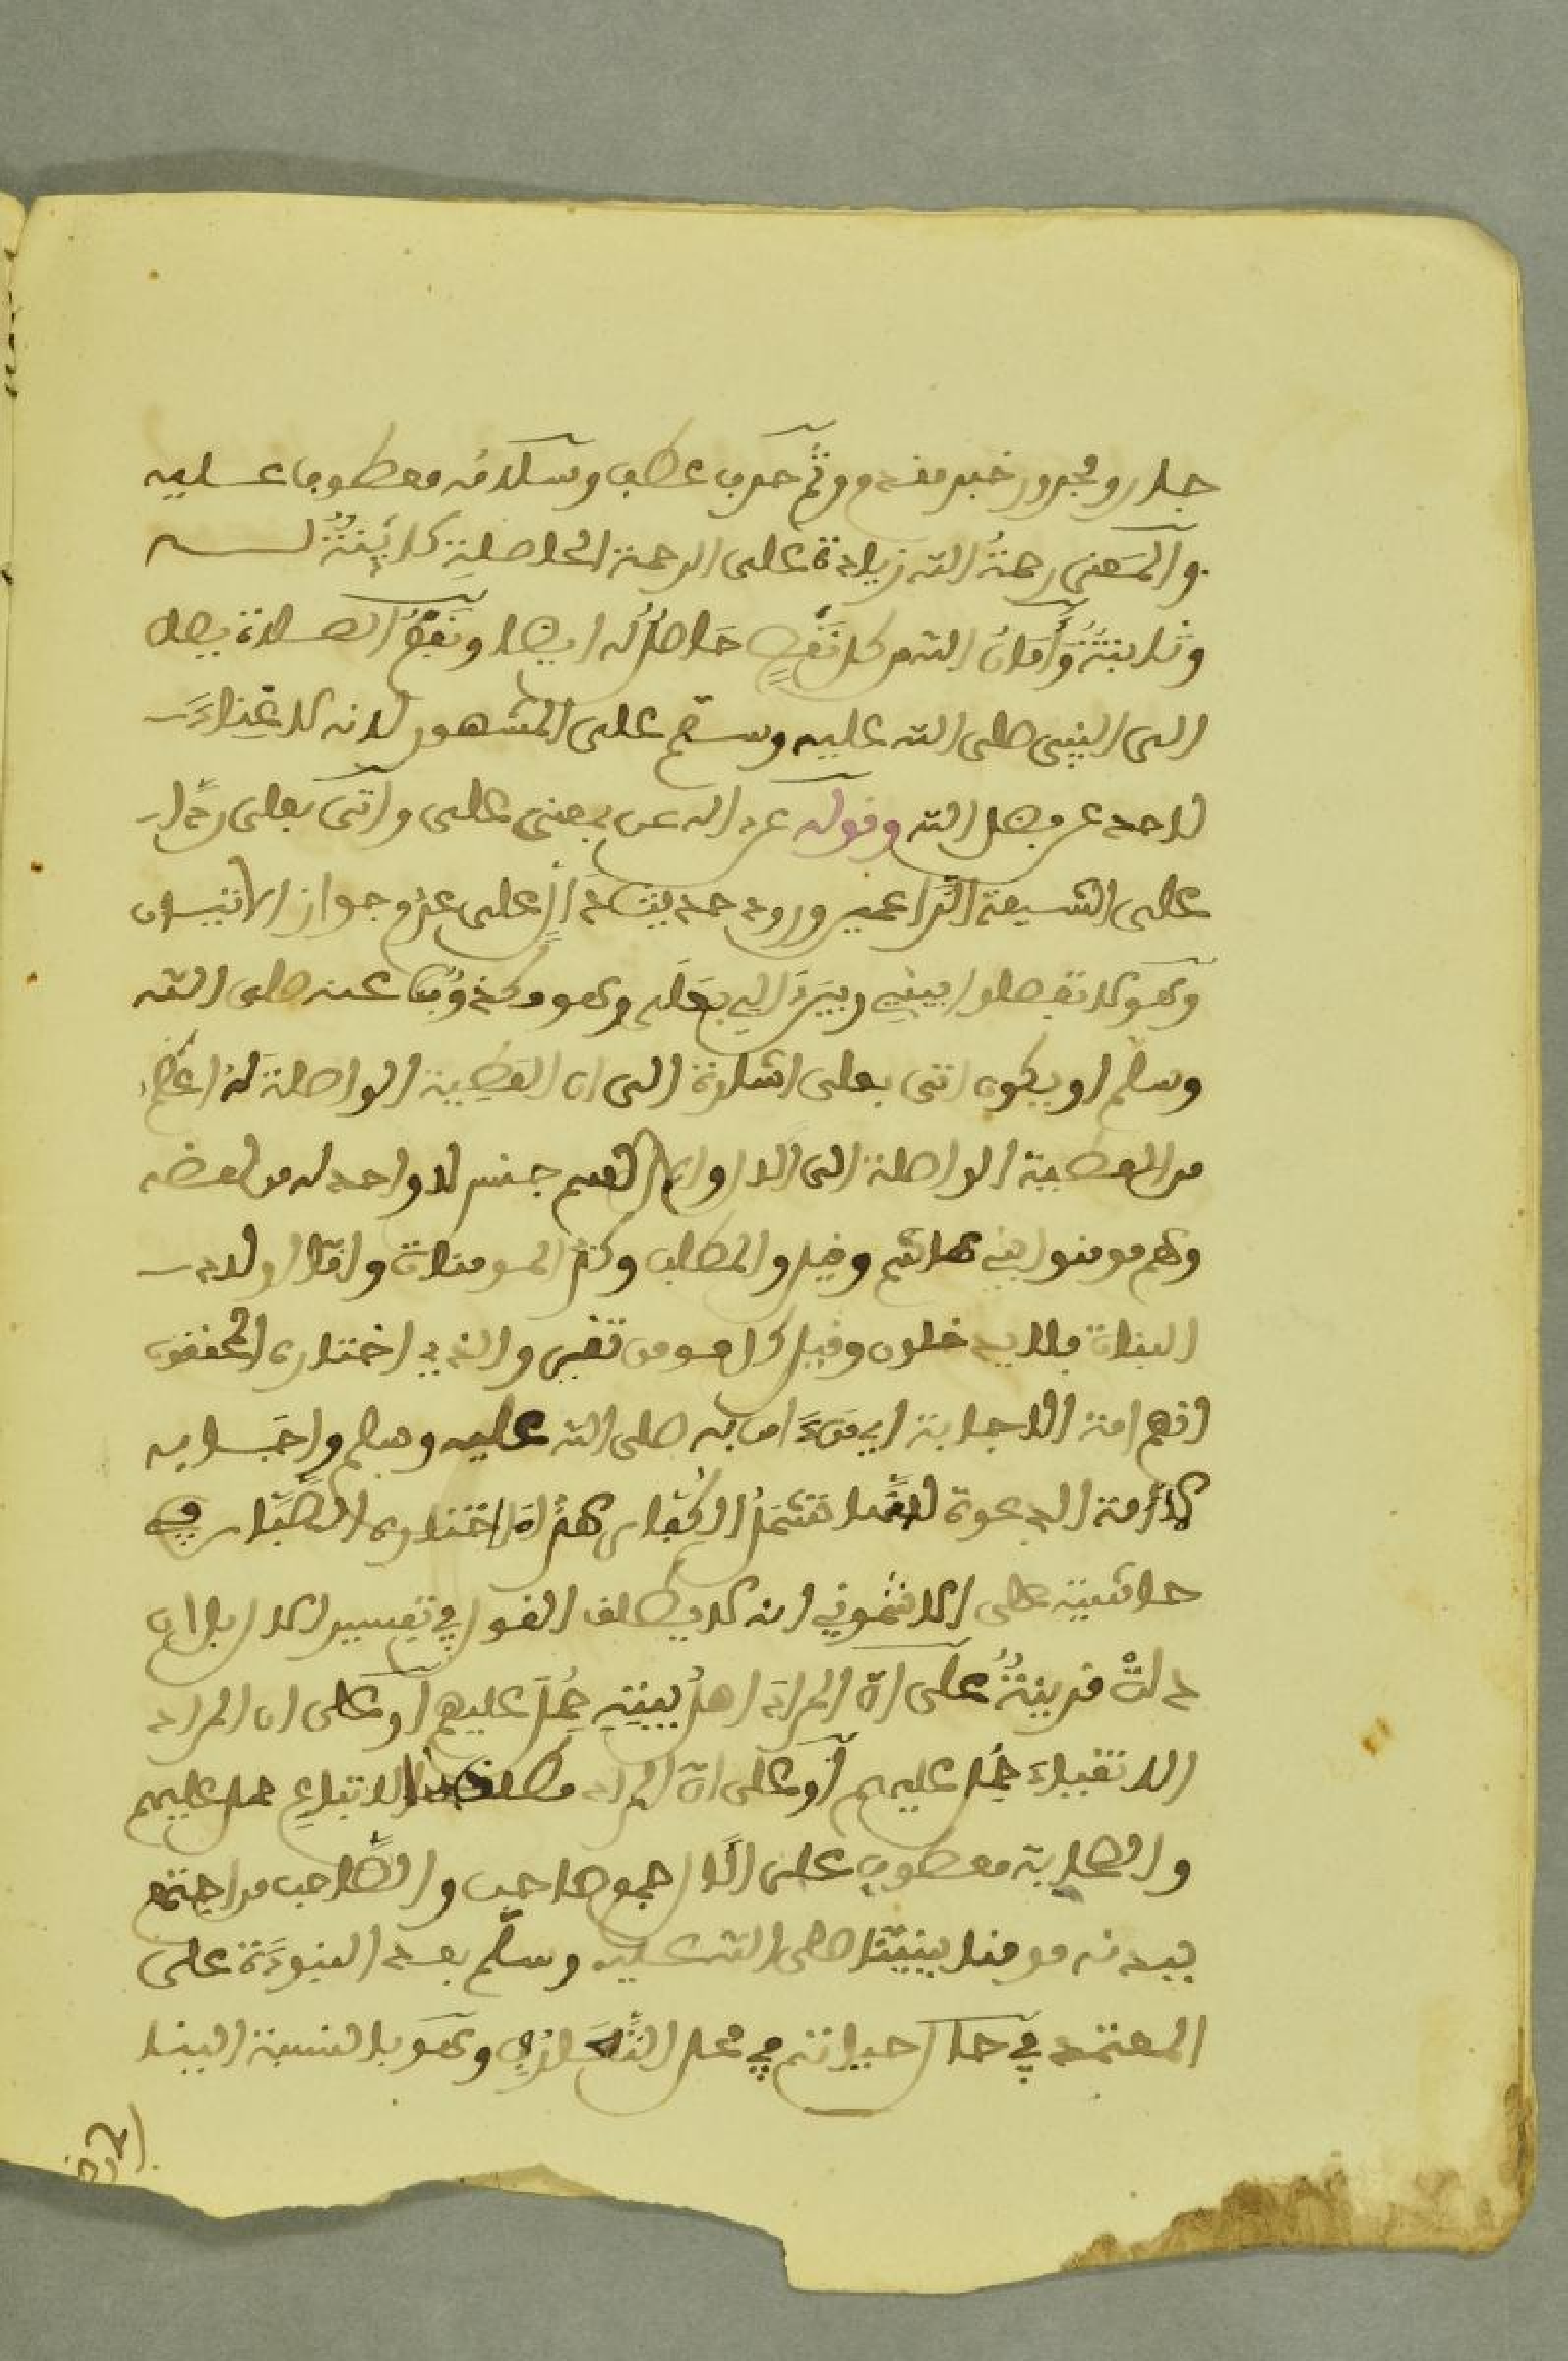 جار ومجرور خبر مقدم وثم حرف عطف وسلامه معطوف عليه
والمَعنى رحمةُ الله زيادة على الرحمة الحاصلةِ كائِنةٌ له
وثابتةٌ وَأمانُ الله من كل نَقْصٍ حَاصلٌ له ايضا ونَفعُ الصلاة يصل
الى النبي صلى الله عليه وسلّم على المشهور لانه لا غِناءَ
لاحد عن فضل الله وقوله على اله على بمعنى على واتى بعلى ردًّا
على الشيعة الزّاعمين ورود حديث دَالٍّ على عدم جواز الاتيان
وهو لا تفصلوا بيني وبين الي بعَلى وهو مكذوبٌ عنه صلى الله
وسلم او يكون اتى بعلى اشارة الى ان العَطِية الواصلة له اعظم
من العطية الواصلة الى الال او اسم جنس لا واحد له من لفظه
وهم مومنوا بني هاشم وقيل والمطلب وكذا المومنات واما اولاد
البنات فلا يدخلون وقيل كل مومن تقي والذي اختاره المحققون
انهم امة الاجابة اي مَن ءامن به صلى الله عليه وسلم واجَابه
لا امة الدعوة لانها تشمل الكُفار هذا واختار الصَّبان في
حاشيته على الاشموني انه لا يطلق القول في تفسير الال بل ان
دلتْ قرينةٌ على انّ المراد اهلُ بيتِهِ حُمِلَ عليهم او على ان المراد
الاتقياءَ حُمِل عليهم أو على انّ المراد مطلق الاتباعِ حمل عليهم
والصحابة معطوف على الال جمع صاحب والصَّاحب من اجتمع
ببدنه مومنا بنبيّنا صلى الله عليه وسلّم بعد النبوءة على
المعتمد في حال حياته في محل التَّعَارُفِ وهو بالنسبة الينا